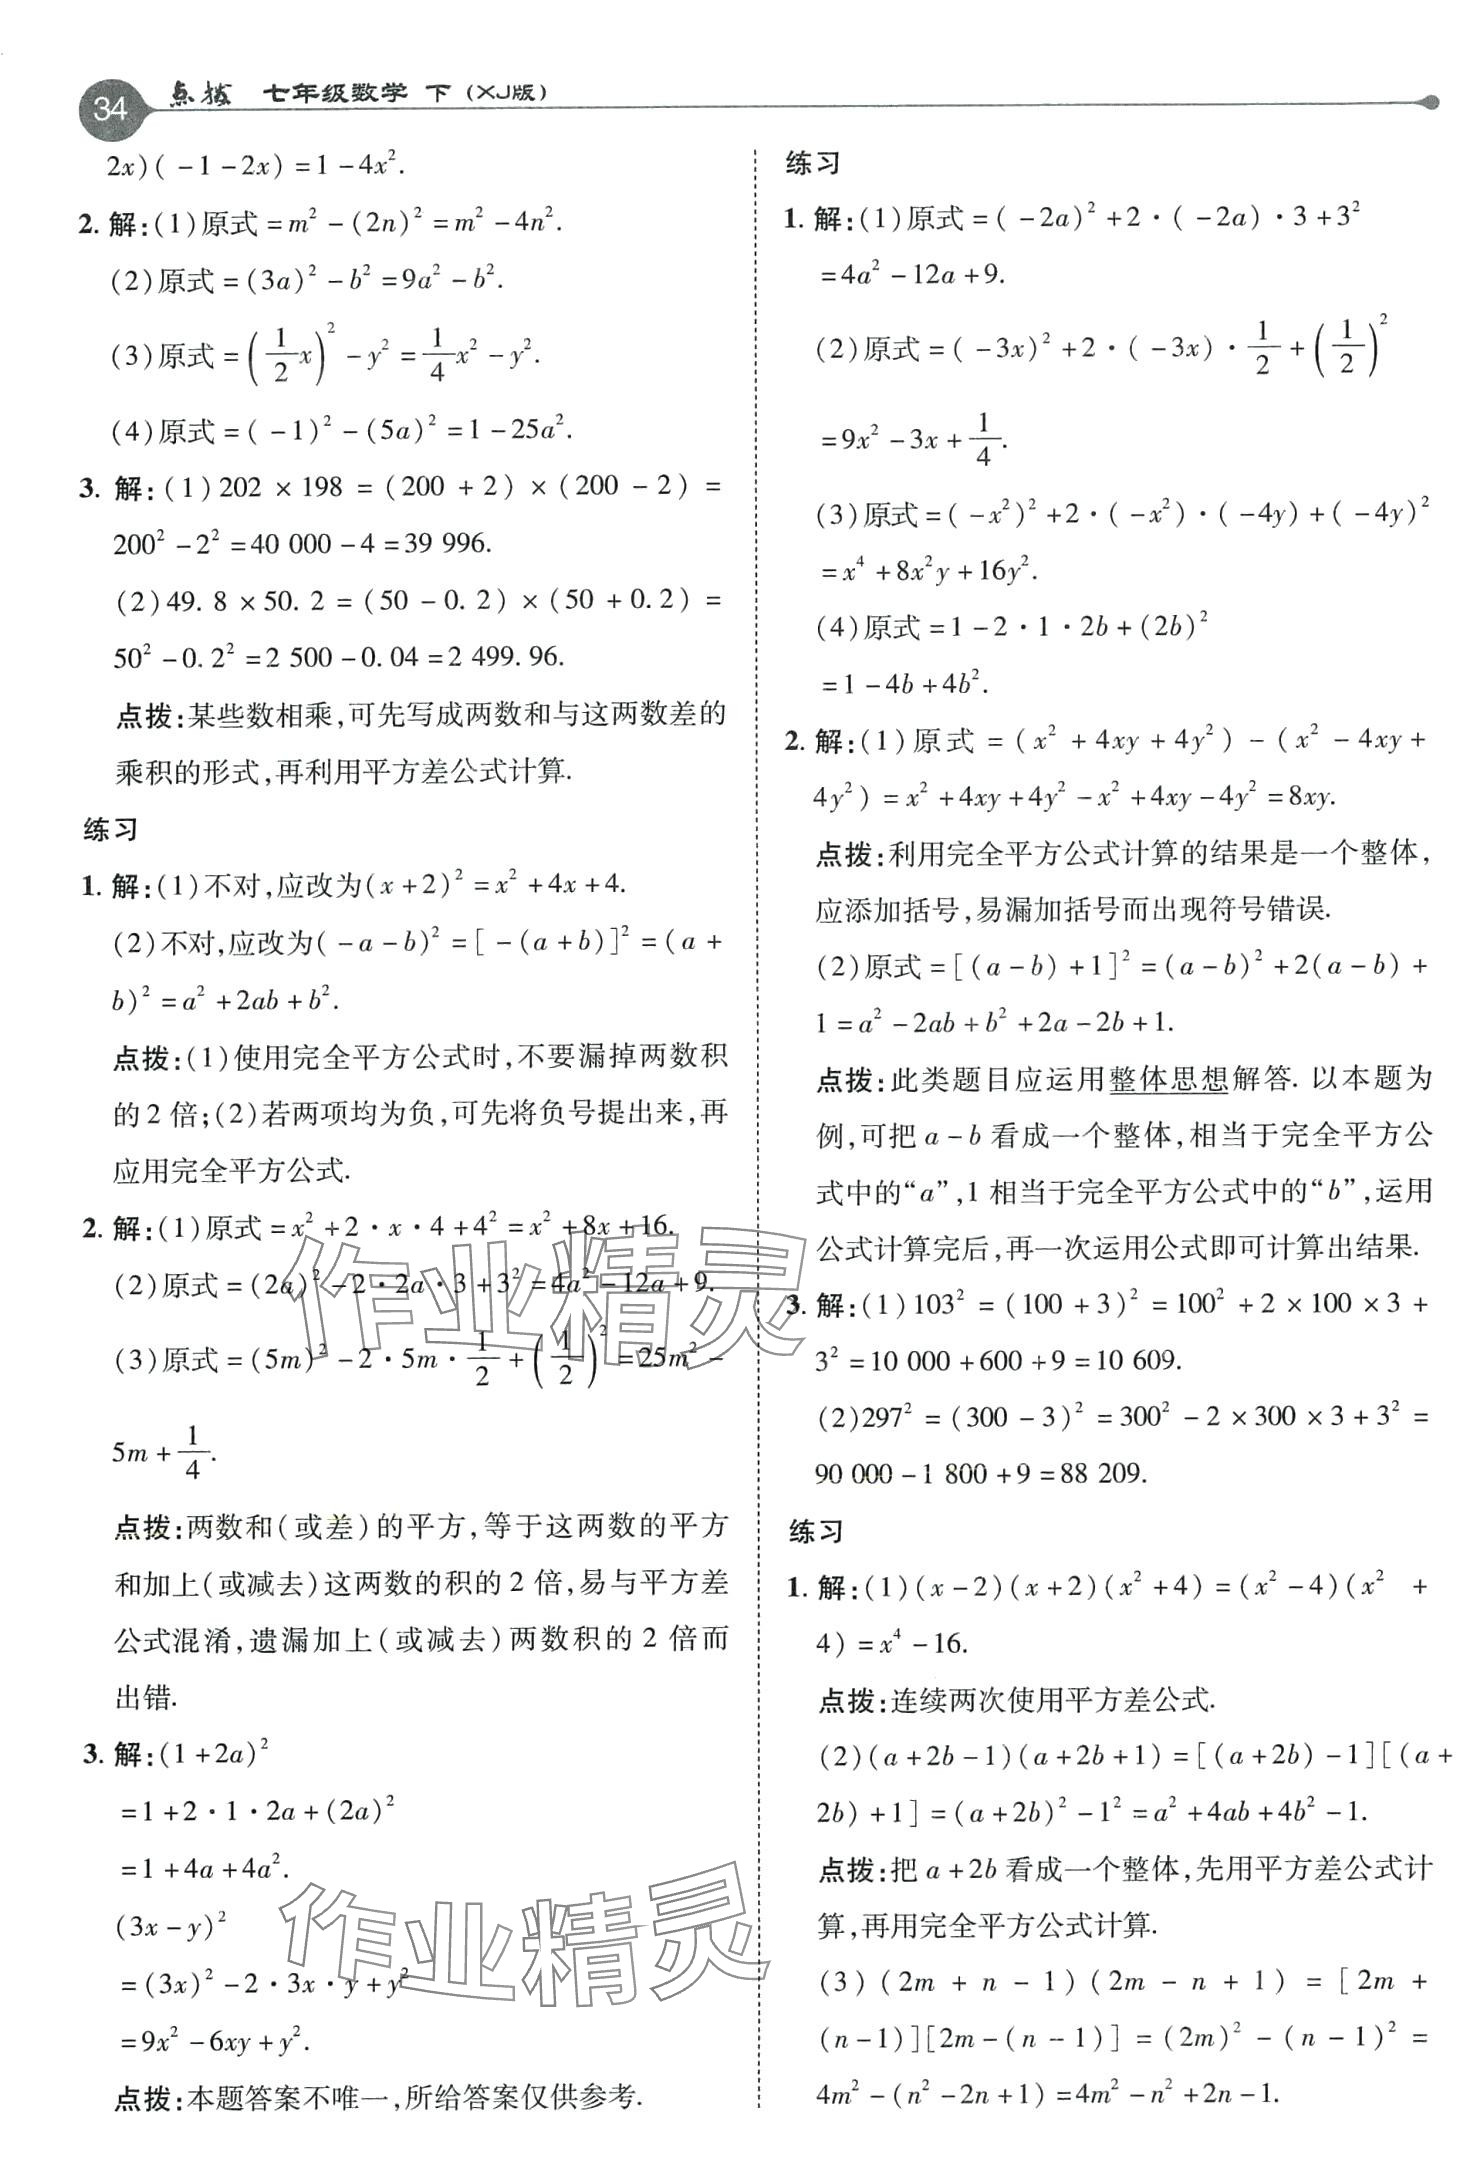 34 点拨 七年级数学 下(XJ版)
2x)(-1-2x)=1-4x².
2. 解:(1)原式=m²-(2n)²=m²-4n².
(2)原式=(3a)²-b²=9a²-b².
(3)原式=(1/2 x)²-y²=1/4 x²-y².
(4)原式=(-1)²-(5a)²=1-25a².
3. 解:(1)202×198=(200+2)×(200-2)=
200²-2²=40 000-4=39 996.
(2)49.8×50.2=(50-0.2)×(50+0.2)=
50²-0.2²=2 500-0.04=2 499.96.
点拨:某些数相乘,可先写成两数和与这两数差的
乘积的形式,再利用平方差公式计算.
练习
1. 解:(1)不对,应改为(x+2)²=x²+4x+4.
(2)不对,应改为(-a-b)²=[-(a+b)]²=(a+
b)²=a²+2ab+b².
点拨:(1)使用完全平方公式时,不要漏掉两数积
的2倍;(2)若两项均为负,可先将负号提出来,再
应用完全平方公式.
2. 解:(1)原式=x²+2·x·4+4²=x²+8x+16.
(2)原式=(2a)²-2·2a·3+3²=4a²-12a+9.
(3)原式=(5m)²-2·5m·1/2+(1/2)²=25m²-
5m+1/4.
点拨:两数和(或差)的平方,等于这两数的平方
和加上(或减去)这两数的积的2倍,易与平方差
公式混淆,遗漏加上(或减去)两数积的2倍而
出错.
3. 解:(1+2a)²
=1+2·1·2a+(2a)²
=1+4a+4a².
(3x-y)²
=(3x)²-2·3x·y+y²
=9x²-6xy+y².
点拨:本题答案不唯一,所给答案仅供参考.
练习
1. 解:(1)原式=(-2a)²+2·(-2a)·3+3²
=4a²-12a+9.
(2)原式=(-3x)²+2·(-3x)·1/2+(1/2)²
=9x²-3x+1/4.
(3)原式=(-x²)²+2·(-x²)·(-4y)+(-4y)²
=x⁴+8x²y+16y².
(4)原式=1-2·1·2b+(2b)²
=1-4b+4b².
2. 解:(1)原式=(x²+4xy+4y²)-(x²-4xy+
4y²)=x²+4xy+4y²-x²+4xy-4y²=8xy.
点拨:利用完全平方公式计算的结果是一个整体,
应添加括号,易漏加括号而出现符号错误.
(2)原式=[(a-b)+1]²=(a-b)²+2(a-b)+
1=a²-2ab+b²+2a-2b+1.
点拨:此类题目应运用整体思想解答.以本题为
例,可把a-b看成一个整体,相当于完全平方公
式中的“a”,1相当于完全平方公式中的“b”,运用
公式计算完后,再一次运用公式即可计算出结果.
3. 解:(1)103²=(100+3)²=100²+2×100×3+
3²=10 000+600+9=10 609.
(2)297²=(300-3)²=300²-2×300×3+3²=
90 000-1 800+9=88 209.
练习
1. 解:(1)(x-2)(x+2)(x²+4)=(x²-4)(x²+
4)=x⁴-16.
点拨:连续两次使用平方差公式.
(2)(a+2b-1)(a+2b+1)=[(a+2b)-1][(a+
2b)+1]=(a+2b)²-1²=a²+4ab+4b²-1.
点拨:把a+2b看成一个整体,先用平方差公式计
算,再用完全平方公式计算.
(3)(2m+n-1)(2m-n+1)=[2m+
(n-1)][2m-(n-1)]=(2m)²-(n-1)²=
4m²-(n²-2n+1)=4m²-n²+2n-1.
作业精灵
作业精灵